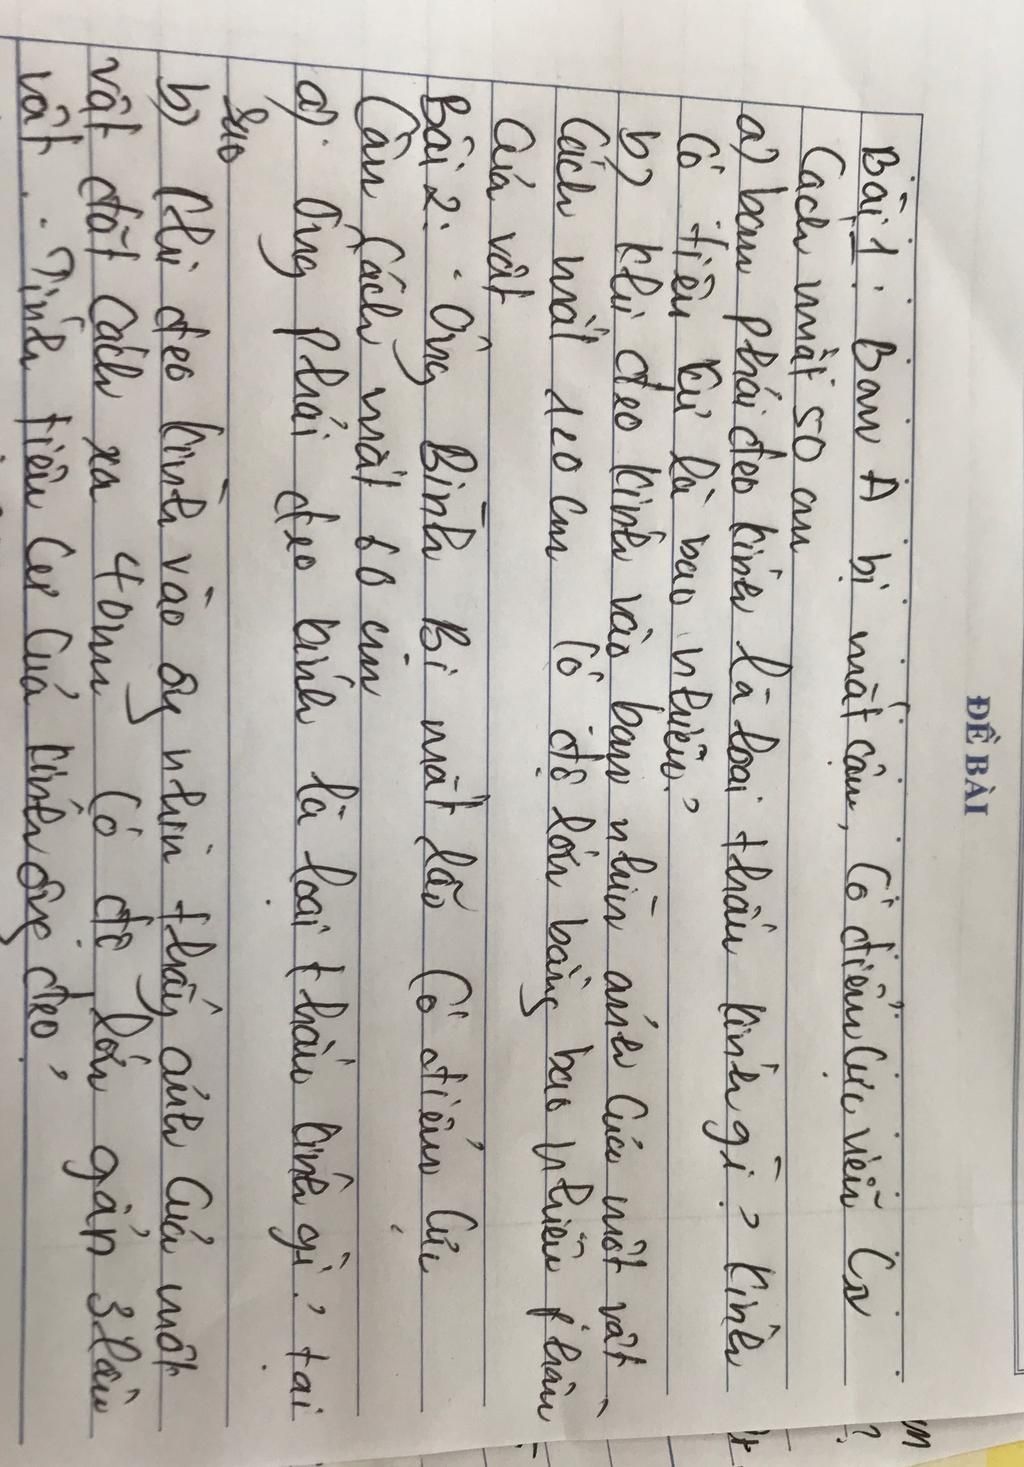 ĐỀ BÀI
Bài 1: Bạn A bị mắt cận, có điểm cực viễn Cv
Cách mắt 50 cm
a) bạn phải đeo kính là loại thấu kính gì? Kính
Có tiêu cự là bao nhiêu?
b) khi đeo kính vào bạn nhìn ảnh của một vật
Cách mắt cm có độ lớn bằng bao nhiêu phần
của vật
Bài 2: Ông Bình Bị mắt lão Có điểm cực
Cận Cách mắt 60 cm
a). Ông phải đeo kính là loại thấu kính gì? tại
sao
b) Khi đeo kính vào ông nhìn thấy ảnh của một
vật đặt cách xa 40cm có độ lớn gấp 3 lần
vật. Tính tiêu cự của kính ông đeo?